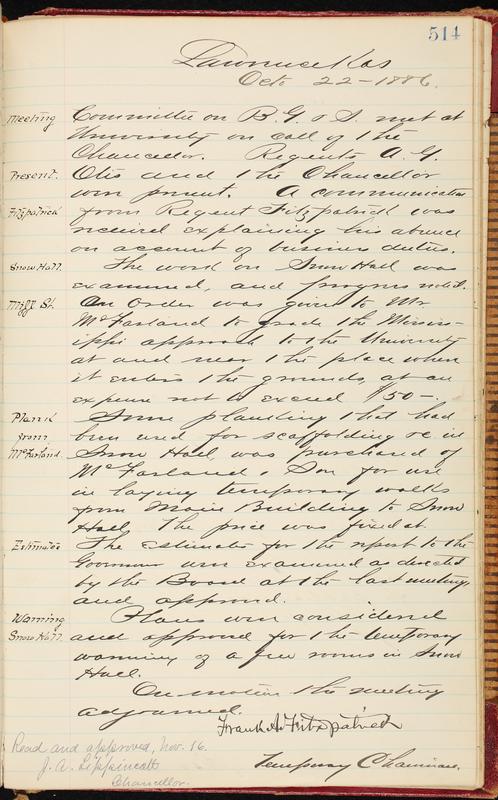 514
Lawrence Kas
Octo 22-1886.
Meeting Committee on B. G. & S. met at
University on call of the
Chancellor. Regents A. G.
Present. Otis and the Chancellor
were present. A communication
Fitzpatrick from Regent Fitzpatrick was
received explaining his absence
on account of business duties.
Snow Hall. The work on Snow Hall was
examined, and progress noted.
Miss. St. An order was given to Mr
McFarland to grade the Mississ-
ippi approach to the University
at and near the place where
it enters the grounds, at an
expense not to exceed $50-.
Plank Some planking that had
from been used for scaffolding &c in
McFarland. Snow Hall was purchased of
McFarland & Son for use
in laying temporary walks
from Main Building to Snow
Hall. The price was fixed at
Estimates The Estimates for the report to the
Governor were examined as directed
by the Board at the last meeting,
and approved.
Warming Plans were considered
Snow Hall. and approved for the temporary
warming of a few rooms in Snow
Hall.
On motion the meeting
adjourned.
Frank A. Fitzpatrick
Temporary Chairman.
Read and approved, Nov. 16.
J. A. Lippincott
Chancellor.